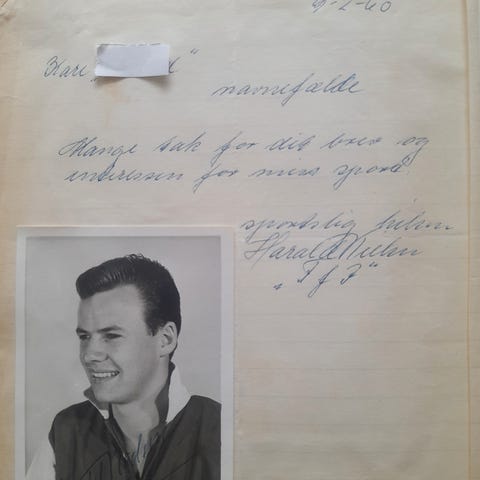 9-2-60
Kære „
navnefælde
Mange tak for dit brev og
interessen for min sport
sportslig hilsen
Harald Nielsen
„F f F“